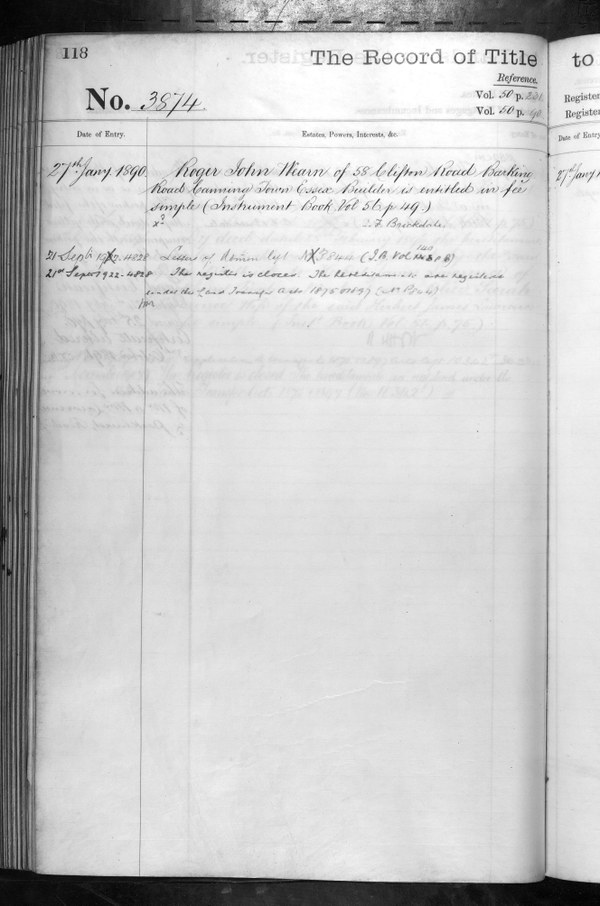 118
The Record of Title
Reference.
No. 3874
Vol. 50 p.
Vol. 50 p.
Date of Entry.
Estates, Powers, Interests, &c.
27th Jany 1890
Roger John Wearn of 58 Clifton Road Barking
Road Canning Town Essex Builder is entitled in fee
simple (Instrument Book Vol 56 p 49.)
C. F. Brickdale.
21 Sept
Letters of
21st Sept 1922-4828
The register is closed. The hereditaments are registered
under the Land Transfer Acts 1875 & 1897
to
Register
Register
Date of Entry
27th Jany 1